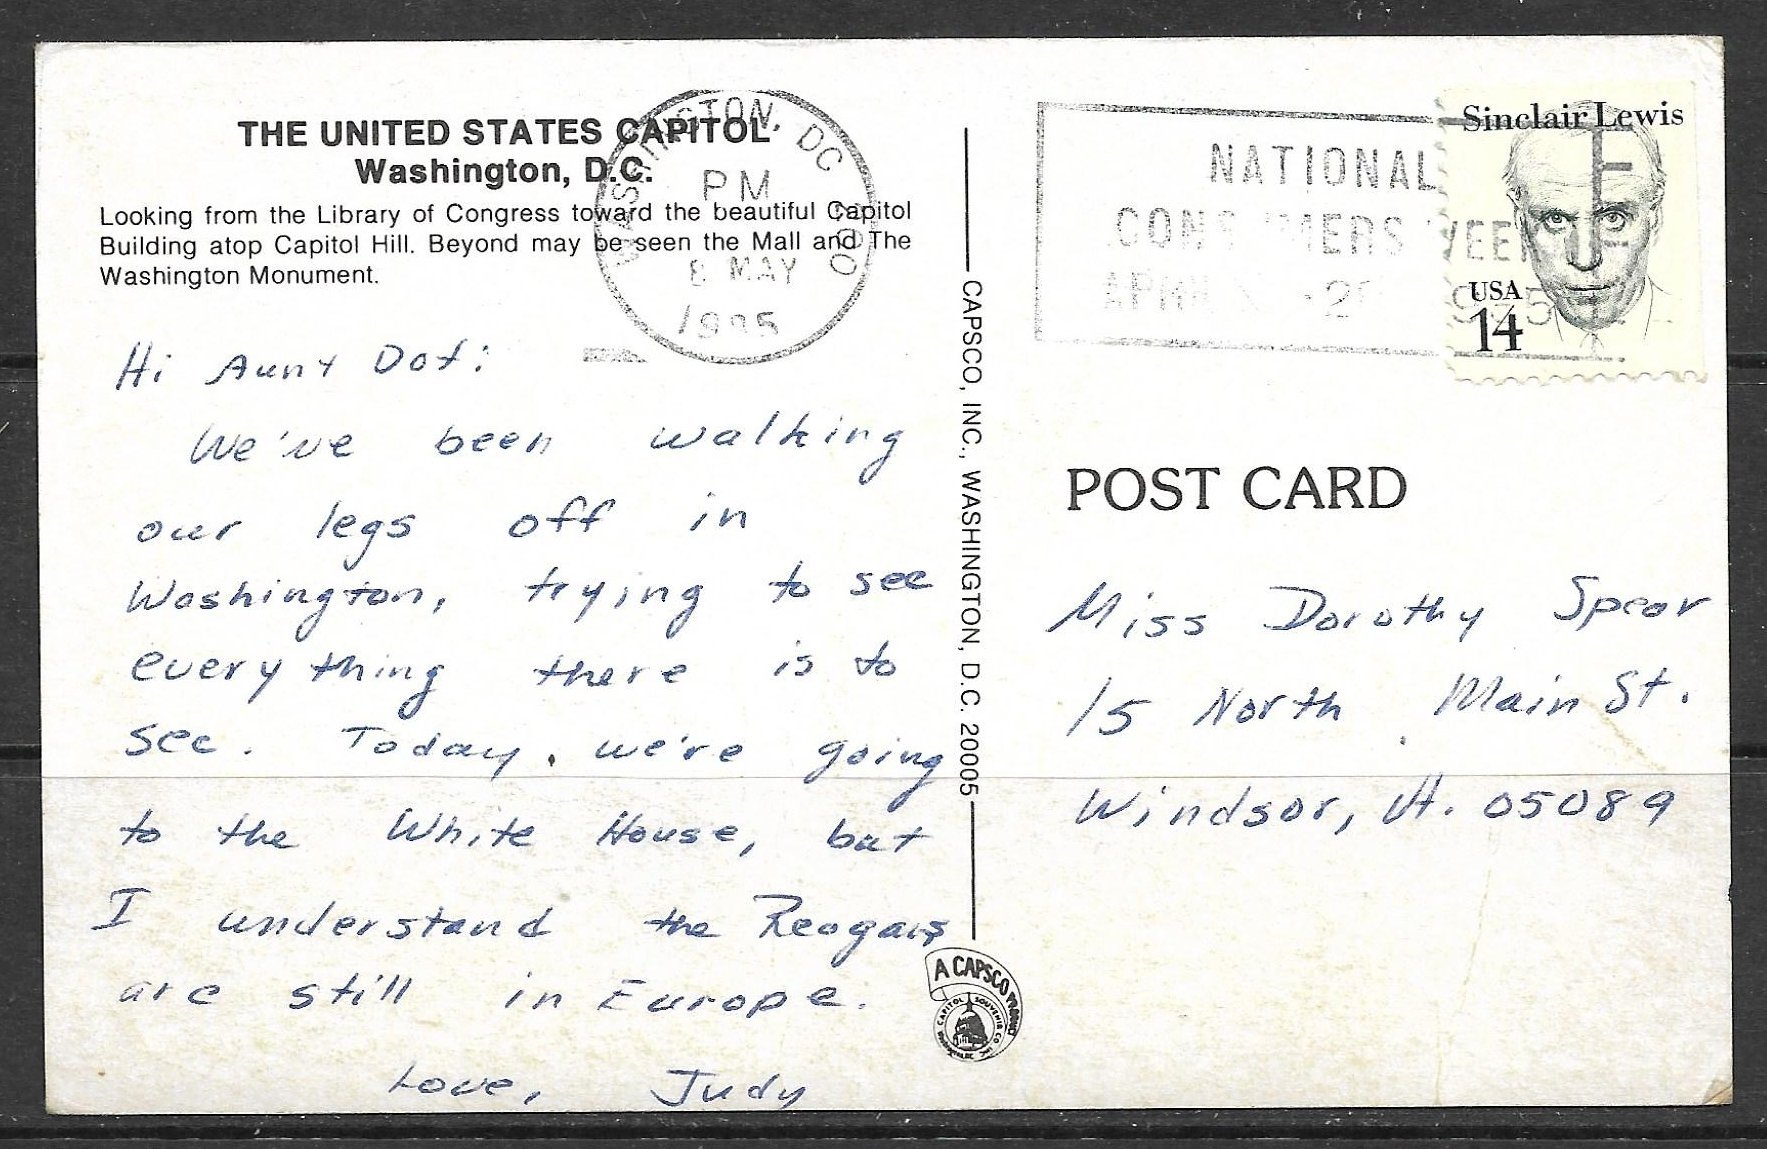 THE UNITED STATES CAPITOL
Washington, D.C.
Looking from the Library of Congress toward the beautiful Capitol
Building atop Capitol Hill. Beyond may be seen the Mall and The
Washington Monument.
WASHINGTON, DC 200
PM
8 MAY
1985
NATIONAL
CONSUMERS WEEK
Sinclair Lewis
USA
14
Hi Aunt Dot:
We've been walking
our legs off in
Washington, trying to see
everything there is to
see. Today, we're going
to the White House, but
I understand the Reagans
are still in Europe.
Love, Judy
CAPSCO, INC., WASHINGTON, D.C. 20005
A CAPSCO
CAPITOL SOUVENIR CO
POST CARD
Miss Dorothy Spear
15 North Main St.
Windsor, Vt. 05089